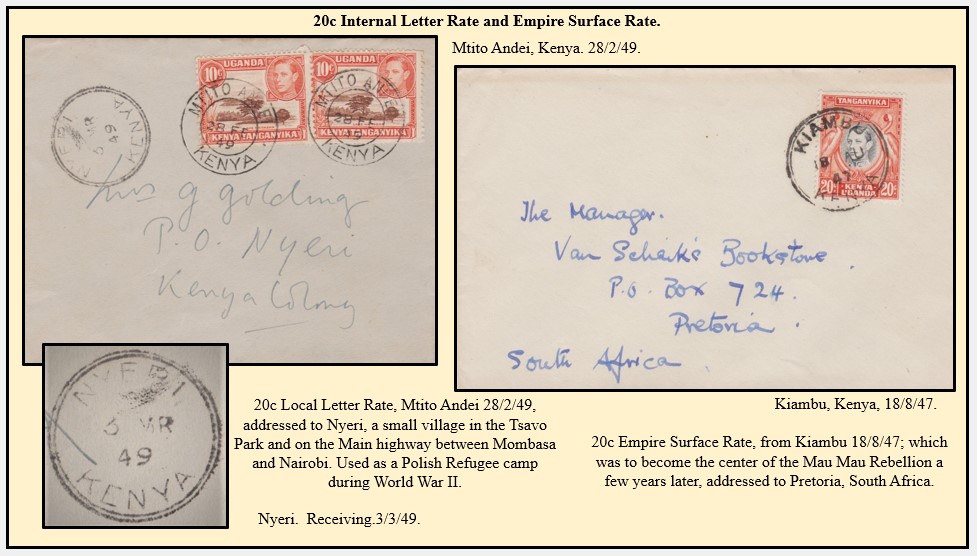 20c Internal Letter Rate and Empire Surface Rate.
Mtito Andei, Kenya. 28/2/49.
UGANDA
10c
KENYA TANGANYIKA
UGANDA
10c
KENYA TANGANYIKA
MTITO ANDEI
28 FE
49
KENYA
MTITO ANDEI
28 FE
49
KENYA
NYERI
3 MR
49
KENYA
Mrs G Golding
P.O. Nyeri
Kenya Colony
TANGANYIKA
20c KENYA UGANDA 20c
KIAMBU
18 AU
47
KENYA
The Manager.
Van Schaik's Bookstore.
P.O. Box 724.
Pretoria.
South Africa
NYERI
3 MR
49
KENYA
20c Local Letter Rate, Mtito Andei 28/2/49,
addressed to Nyeri, a small village in the Tsavo
Park and on the Main highway between Mombasa
and Nairobi. Used as a Polish Refugee camp
during World War II.
Nyeri. Receiving.3/3/49.
Kiambu, Kenya, 18/8/47.
20c Empire Surface Rate, from Kiambu 18/8/47; which
was to become the center of the Mau Mau Rebellion a
few years later, addressed to Pretoria, South Africa.